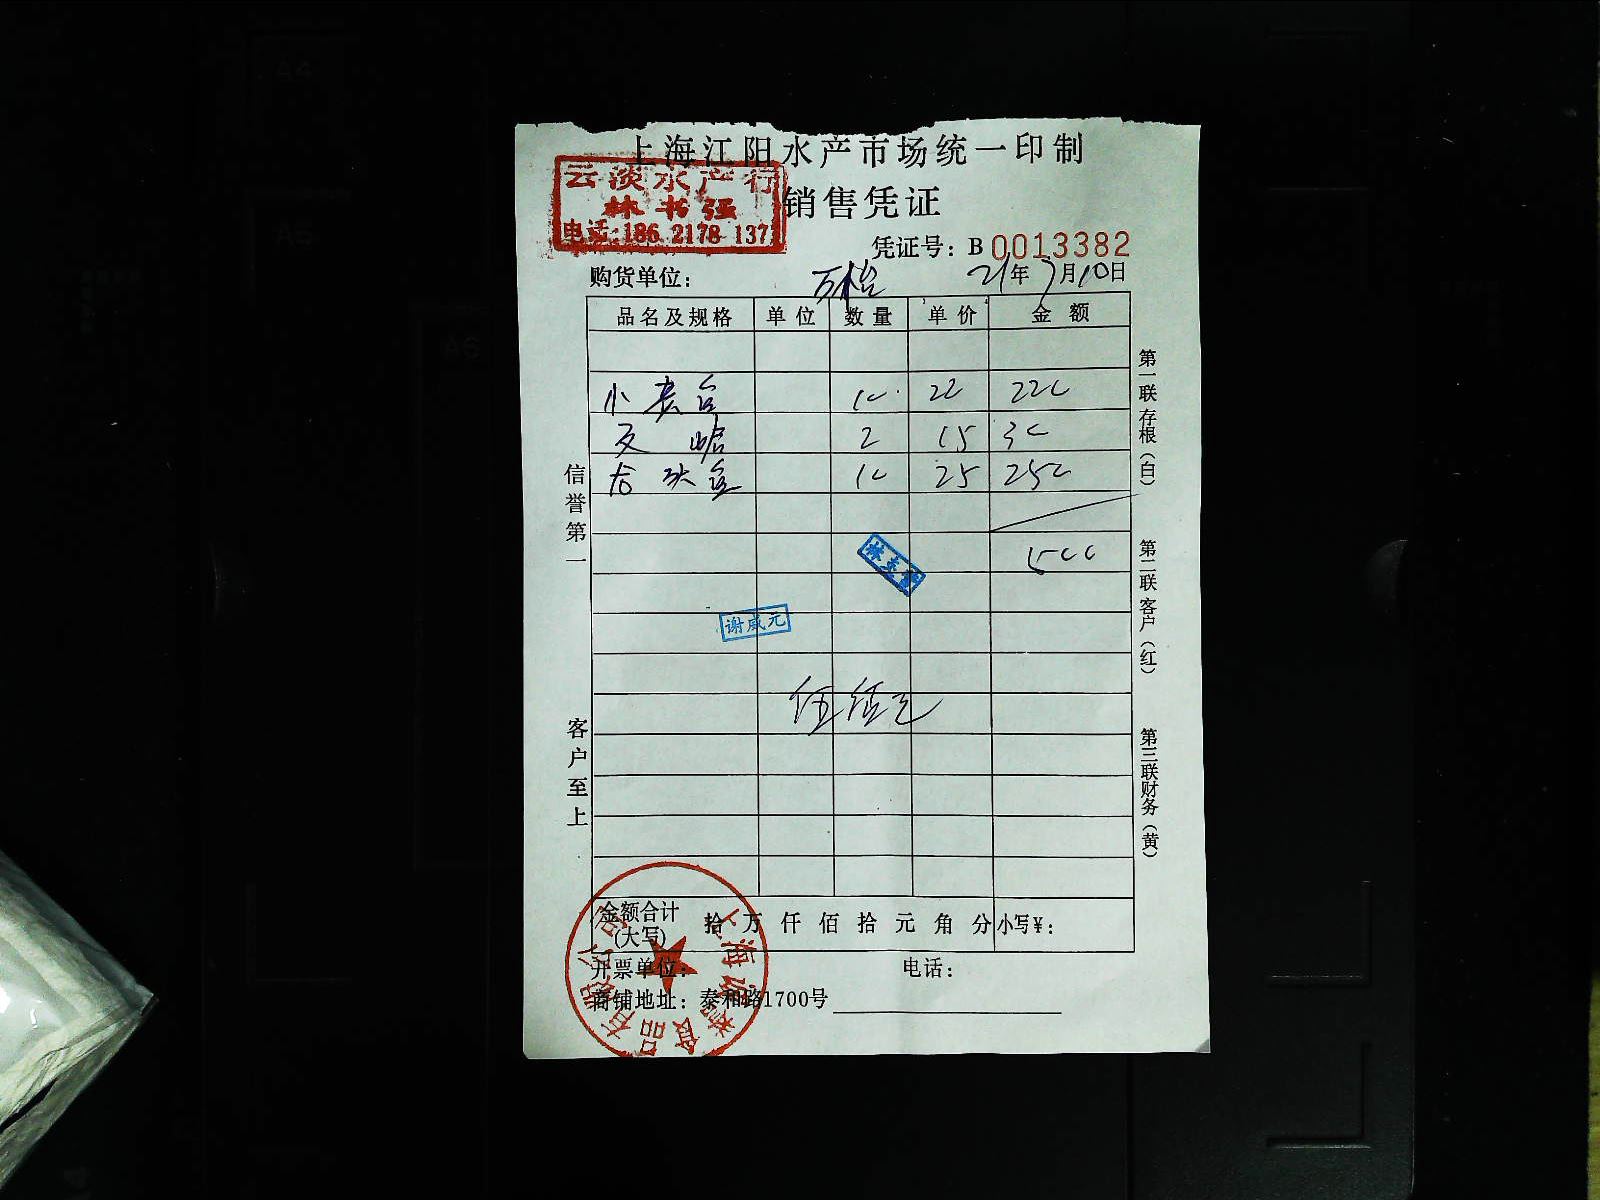 上海江阳水产市场统一印制
云淡水产行
林书强
电话:186 2178 137
销售凭证
凭证号: B 0013382
购货单位: 万怡 21年7月10日
品名及规格 单位 数量 单价 金额
小 10 22 220
2 15 30
10 25 250
500
谢咸元
伍佰元
信誉第一
客户至上
第一联存根(白)
第二联客户(红)
第三联财务(黄)
金额合计(大写) 拾 万 仟 佰 拾 元 角 分 小写¥:
开票单位: 电话:
商铺地址: 泰和路1700号